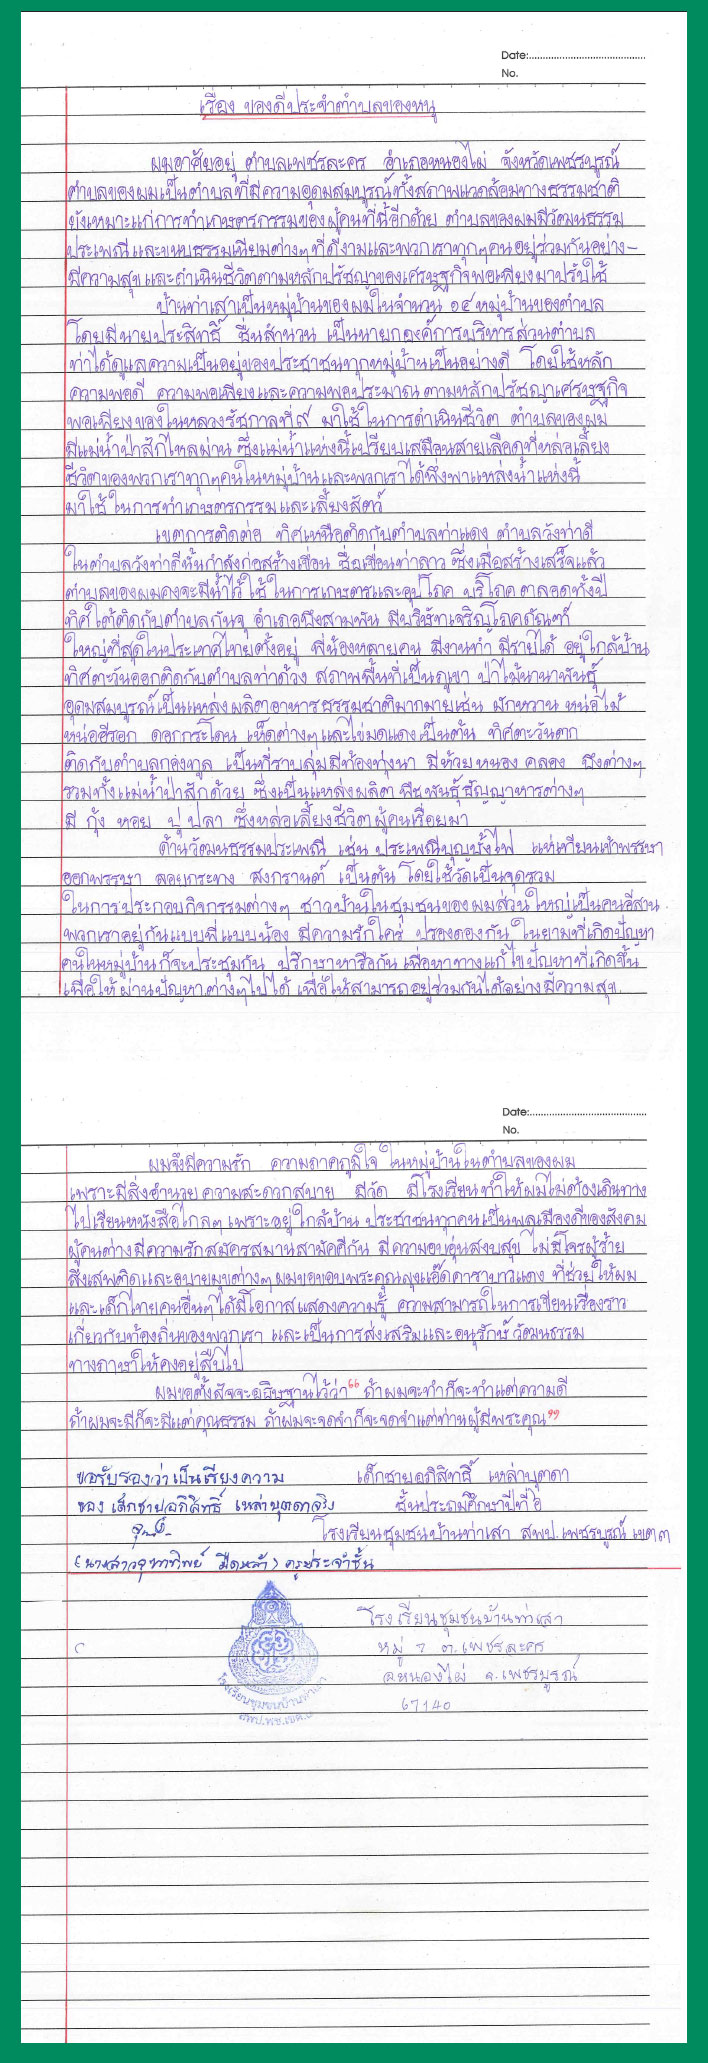 Date:
No.
เรื่อง ของดีประจำตำบลของหนู
ผมอาศัยอยู่ ตำบลเพชรละคร อำเภอหนองไผ่ จังหวัดเพชรบูรณ์
ตำบลของผมเป็นตำบลที่มีความอุดมสมบูรณ์ทั้งสภาพแวดล้อมทางธรรมชาติ
ยังเหมาะแก่การทำเกษตรกรรมของผู้คนที่นี้อีกด้วย ตำบลของผมมีวัฒนธรรม
ประเพณีและขนบธรรมเนียมต่างๆที่ดีงามและพวกเราทุกๆคนอยู่ร่วมกันอย่าง-
มีความสุข และดำเนินชีวิตตามหลักปรัชญาของเศรษฐกิจพอเพียงมาปรับใช้
บ้านท่าเสาเป็นหมู่บ้านของผมในจำนวน ๑๔ หมู่บ้านของตำบล
โดยมีนายประสิทธิ์ ชื่นสำนวน เป็นนายกองค์การบริหารส่วนตำบล
ท่าได้ดูแลความเป็นอยู่ของประชาชนทุกหมู่บ้านเป็นอย่างดี โดยใช้หลัก
ความพอดี ความพอเพียงและความพอประมาณ ตามหลักปรัชญาเศรษฐกิจ
พอเพียงของในหลวงรัชกาลที่๙ มาใช้ในการดำเนินชีวิต ตำบลของผม
มีแม่น้ำป่าสักไหลผ่าน ซึ่งแม่น้ำแห่งนี้เปรียบเสมือนสายเลือดที่หล่อเลี้ยง
ชีวิตของพวกเราทุกๆคนในหมู่บ้านและพวกเราได้พึ่งพาแหล่งน้ำแห่งนี้
มาใช้ในการทำเกษตรกรรมและเลี้ยงสัตว์
เขตการติดต่อ ทิศเหนือติดกับตำบลท่าแดง ตำบลวังท่าดี
ในตำบลวังท่าดีนั้นกำลังก่อสร้างเขื่อน ชื่อเขื่อนท่าลาว ซึ่งเมื่อสร้างเสร็จแล้ว
ตำบลของผมคงจะมีน้ำไว้ใช้ในการเกษตรและอุปโภค บริโภคตลอดทั้งปี
ทิศใต้ติดกับตำบลกันจุ อำเภอบึงสามพัน มีบริษัทเจริญโภคภัณฑ์
ใหญ่ที่สุดในประเทศไทยตั้งอยู่ พี่น้องหลายคน มีงานทำ มีรายได้ อยู่ใกล้บ้าน
ทิศตะวันออกติดกับตำบลท่าด้วง สภาพพื้นที่เป็นภูเขา ป่าไม้นานาพันธุ์
อุดมสมบูรณ์เป็นแหล่งผลิตอาหารธรรมชาติมากมายเช่น ผักหวาน หน่อไม้
หน่ออีรอก ดอกกระโดน เห็ดต่างๆและไข่มดแดงเป็นต้น ทิศตะวันตก
ติดกับตำบลกองทูล เป็นที่ราบลุ่มมีท้องทุ่งนา มีห้วยหนอง คลอง บึงต่างๆ
รวมทั้งแม่น้ำป่าสักด้วย ซึ่งเป็นแหล่งผลิต พืชพันธุ์ธัญญาหารต่างๆ
มี กุ้ง หอย ปู ปลา ซึ่งหล่อเลี้ยงชีวิตผู้คนเรื่อยมา
ด้านวัฒนธรรมประเพณี เช่น ประเพณีบุญบั้งไฟ แห่เทียนเข้าพรรษา
ออกพรรษา ลอยกระทง สงกรานต์ เป็นต้น โดยใช้วัดเป็นจุดรวม
ในการประกอบกิจกรรมต่างๆ ชาวบ้านในชุมชนของผมส่วนใหญ่เป็นคนอีสาน
พวกเราอยู่กันแบบพี่แบบน้อง มีความรักใคร่ ปรองดองกัน ในยามที่เกิดปัญหา
คนในหมู่บ้านก็จะประชุมกัน ปรึกษาหารือกัน เพื่อหาทางแก้ไขปัญหาที่เกิดขึ้น
เพื่อให้ผ่านปัญหาต่างๆไปได้ เพื่อให้สามารถอยู่ร่วมกันได้อย่างมีความสุข.
Date:
No.
ผมจึงมีความรัก ความภาคภูมิใจ ในหมู่บ้านในตำบลของผม
เพราะมีสิ่งอำนวยความสะดวกสบาย มีวัด มีโรงเรียนทำให้ผมไม่ต้องเดินทาง
ไปเรียนหนังสือไกลๆ เพราะอยู่ใกล้บ้าน ประชาชนทุกคนเป็นพลเมืองดีของสังคม
ผู้คนต่างมีความรักสมัครสมานสามัคคีกัน มีความอบอุ่นสงบสุข ไม่มีโจรผู้ร้าย
สิ่งเสพติดและอบายมุขต่างๆ ผมขอขอบพระคุณลุงแอ๊ดคาราบาวแดง ที่ช่วยให้ผม
และเด็กไทยคนอื่นๆได้มีโอกาสแสดงความรู้ ความสามารถในการเขียนเรื่องราว
เกี่ยวกับท้องถิ่นของพวกเรา และเป็นการส่งเสริมและอนุรักษ์วัฒนธรรม
ทางภาษาให้คงอยู่สืบไป
ผมขอตั้งสัจจะอธิษฐานไว้ว่า“ ถ้าผมจะทำก็จะทำแต่ความดี
ถ้าผมจะมีก็จะมีแต่คุณธรรม ถ้าผมจะจดจำก็จะจดจำแต่ท่านผู้มีพระคุณ”
ขอรับรองว่าเป็นเรียงความ เด็กชายอภิสิทธิ์ เหล่าบุตดา
ของ เด็กชายอภิสิทธิ์ เหล่าบุตดาจริง ชั้นประถมศึกษาปีที่ ๖
โรงเรียนชุมชนบ้านท่าเสา สพป.เพชรบูรณ์ เขต๓
(นางสาวจุฑาทิพย์ มืดหล้า) ครูประจำชั้น
โรงเรียนชุมชนบ้านท่าเสา
หมู่ 7 ต.เพชรละคร
อ.หนองไผ่ จ.เพชรบูรณ์
67140